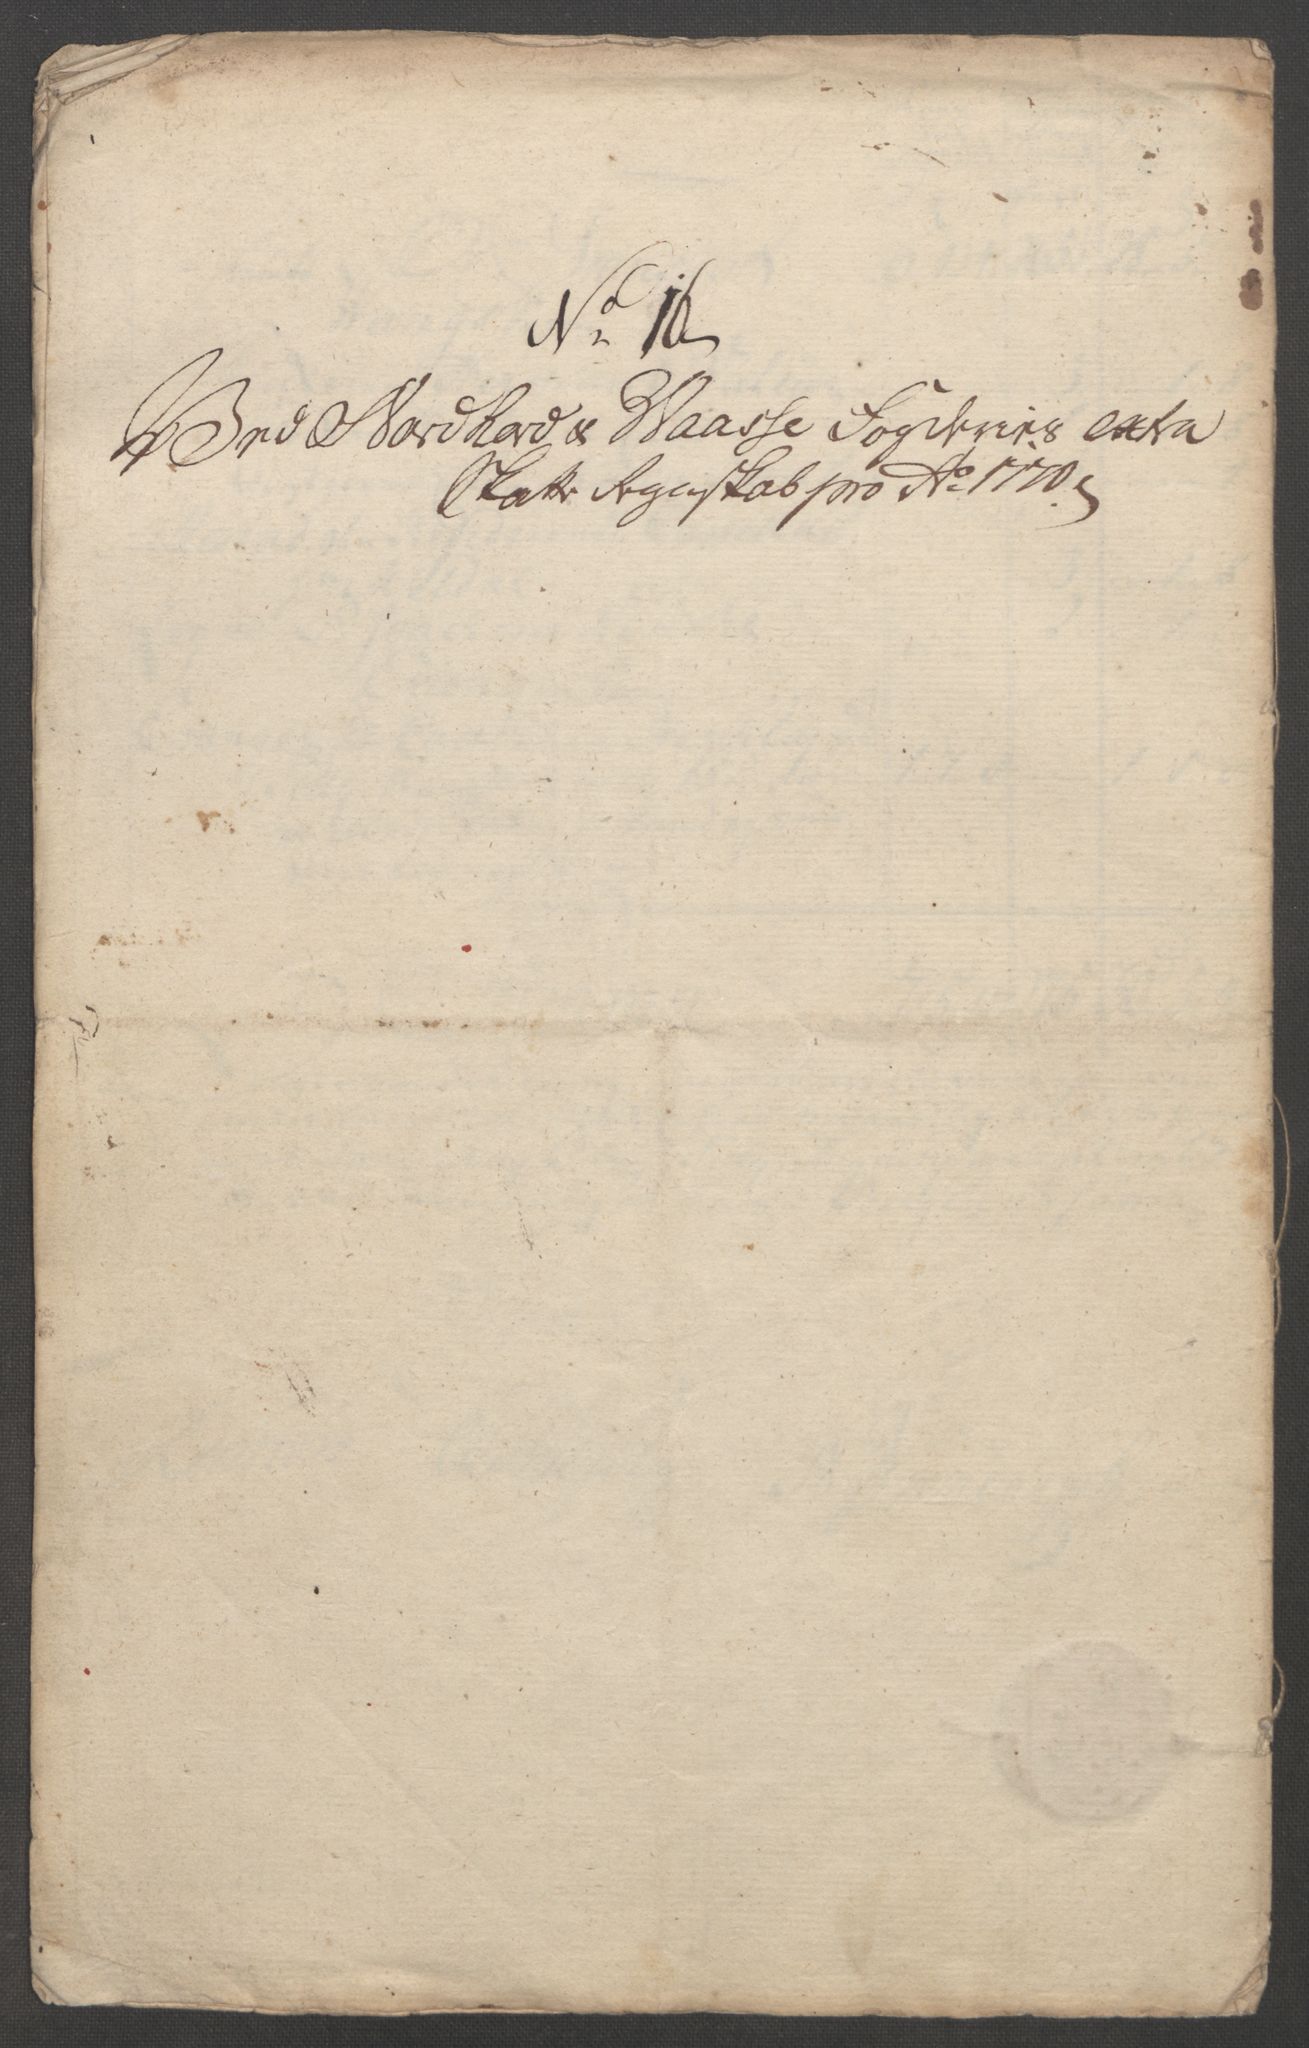 No 16
Ved Nordhord & Waasse Fogderies exta
Skatte Regnskab pro Ao 1770